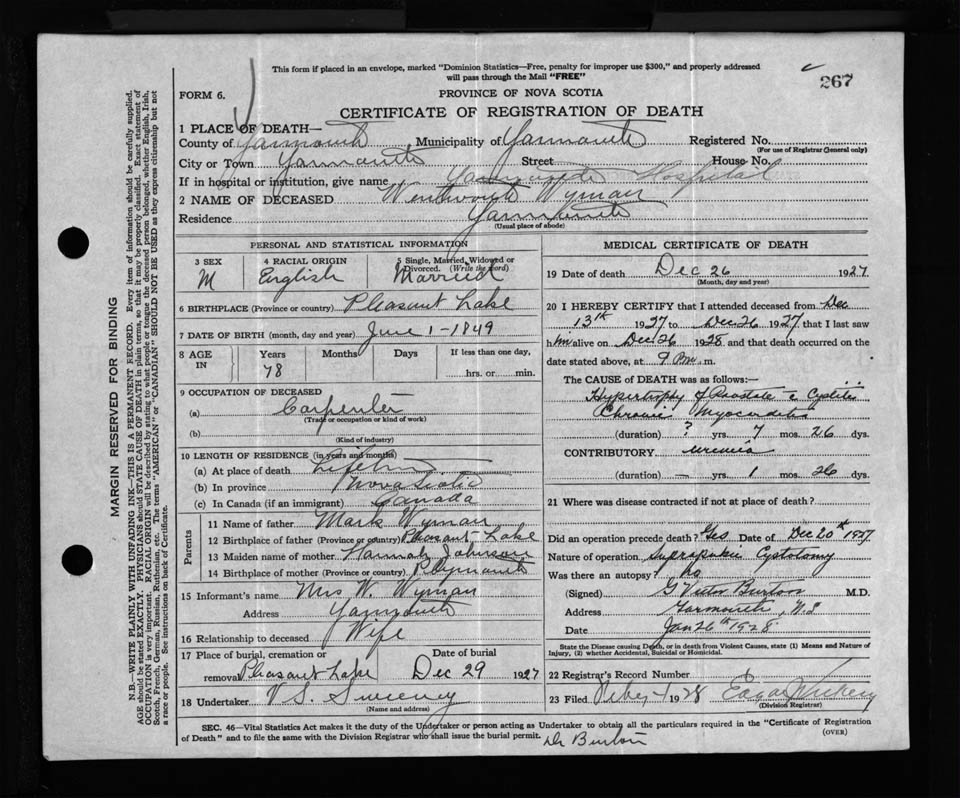 This form if placed in an envelope, marked "Dominion Statistics—Free, penalty for improper use $300," and properly addressed
will pass through the Mail "FREE"
267
FORM 6.
PROVINCE OF NOVA SCOTIA
CERTIFICATE OF REGISTRATION OF DEATH
1 PLACE OF DEATH—
County of Yarmouth Municipality of Yarmouth Registered No.
(For use of Registrar General only)
City or Town Yarmouth Street House No.
If in hospital or institution, give name Yarmouth Hospital
2 NAME OF DECEASED Wentworth Wyman
Residence Yarmouth
(Usual place of abode)
PERSONAL AND STATISTICAL INFORMATION
3 SEX 4 RACIAL ORIGIN 5 Single, Married, Widowed or
Divorced. (Write the word)
M English Married
6 BIRTHPLACE (Province or country) Pleasant Lake
7 DATE OF BIRTH (month, day and year) June 1-1849
8 AGE IN Years Months Days If less than one day,
78 hrs. or min.
9 OCCUPATION OF DECEASED
(a) Carpenter
(Trade or occupation or kind of work)
(b)
(Kind of industry)
10 LENGTH OF RESIDENCE (in years and months)
(a) At place of death Lifetime
(b) In province Nova Scotia
(c) In Canada (if an immigrant) Canada
Parents
11 Name of father Mark Wyman
12 Birthplace of father (Province or country) Pleasant Lake
13 Maiden name of mother Hannah Johnson
14 Birthplace of mother (Province or country) Plymouth
15 Informant's name Mrs W. Wyman
Address Yarmouth
16 Relationship to deceased Wife
17 Place of burial, cremation or Date of burial
removal Pleasant Lake Dec 29 1927
18 Undertaker V S. Sweeney
(Name and address)
MEDICAL CERTIFICATE OF DEATH
19 Date of death Dec 26 1927
(Month, day and year)
20 I HEREBY CERTIFY that I attended deceased from Dec
13th 1927 to Dec 26 1927, that I last saw
him alive on Dec 26 1928 and that death occurred on the
date stated above, at 9 Pm. m.
The CAUSE OF DEATH was as follows:
Hypertrophy of Prostate c Cystitis
Chronic Myocarditis
(duration) ? yrs. 7 mos. 26 dys.
CONTRIBUTORY uremia
(duration) — yrs. 1 mos. 26 dys.
21 Where was disease contracted if not at place of death?
Did an operation precede death? Yes Date of Dec 20th 1927.
Nature of operation Suprapubic Cystotomy
Was there an autopsy? No
(Signed) G. Victor Burton M.D.
Address Yarmouth, N.S
Date Jan 26th 1928
State the Disease causing Death, or in death from Violent Causes, state (1) Means and Nature of
Injury, (2) whether Accidental, Suicidal or Homicidal.
22 Registrar's Record Number
23 Filed 1928 Edgar
(Division Registrar)
SEC. 46—Vital Statistics Act makes it the duty of the Undertaker or person acting as Undertaker to obtain all the particulars required in the "Certificate of Registration
of Death" and to file the same with the Division Registrar who shall issue the burial permit.
(OVER)
Dr Burton
MARGIN RESERVED FOR BINDING
N.B.—WRITE PLAINLY WITH UNFADING INK—THIS IS A PERMANENT RECORD. Every item of information should be carefully supplied.
AGE should be stated EXACTLY. PHYSICIANS should STATE CAUSE OF DEATH in plain terms, so that it may be properly classified. Exact statement of
OCCUPATION is very important. RACIAL ORIGIN will be described by stating to what people or tongue the deceased person belonged, whether English, Irish,
Scotch, French, German, Russian, Ruthenian, etc. The terms "AMERICAN" or "CANADIAN" SHOULD NOT BE USED as they express citizenship but not
a race or people. See instructions on back of Certificate.